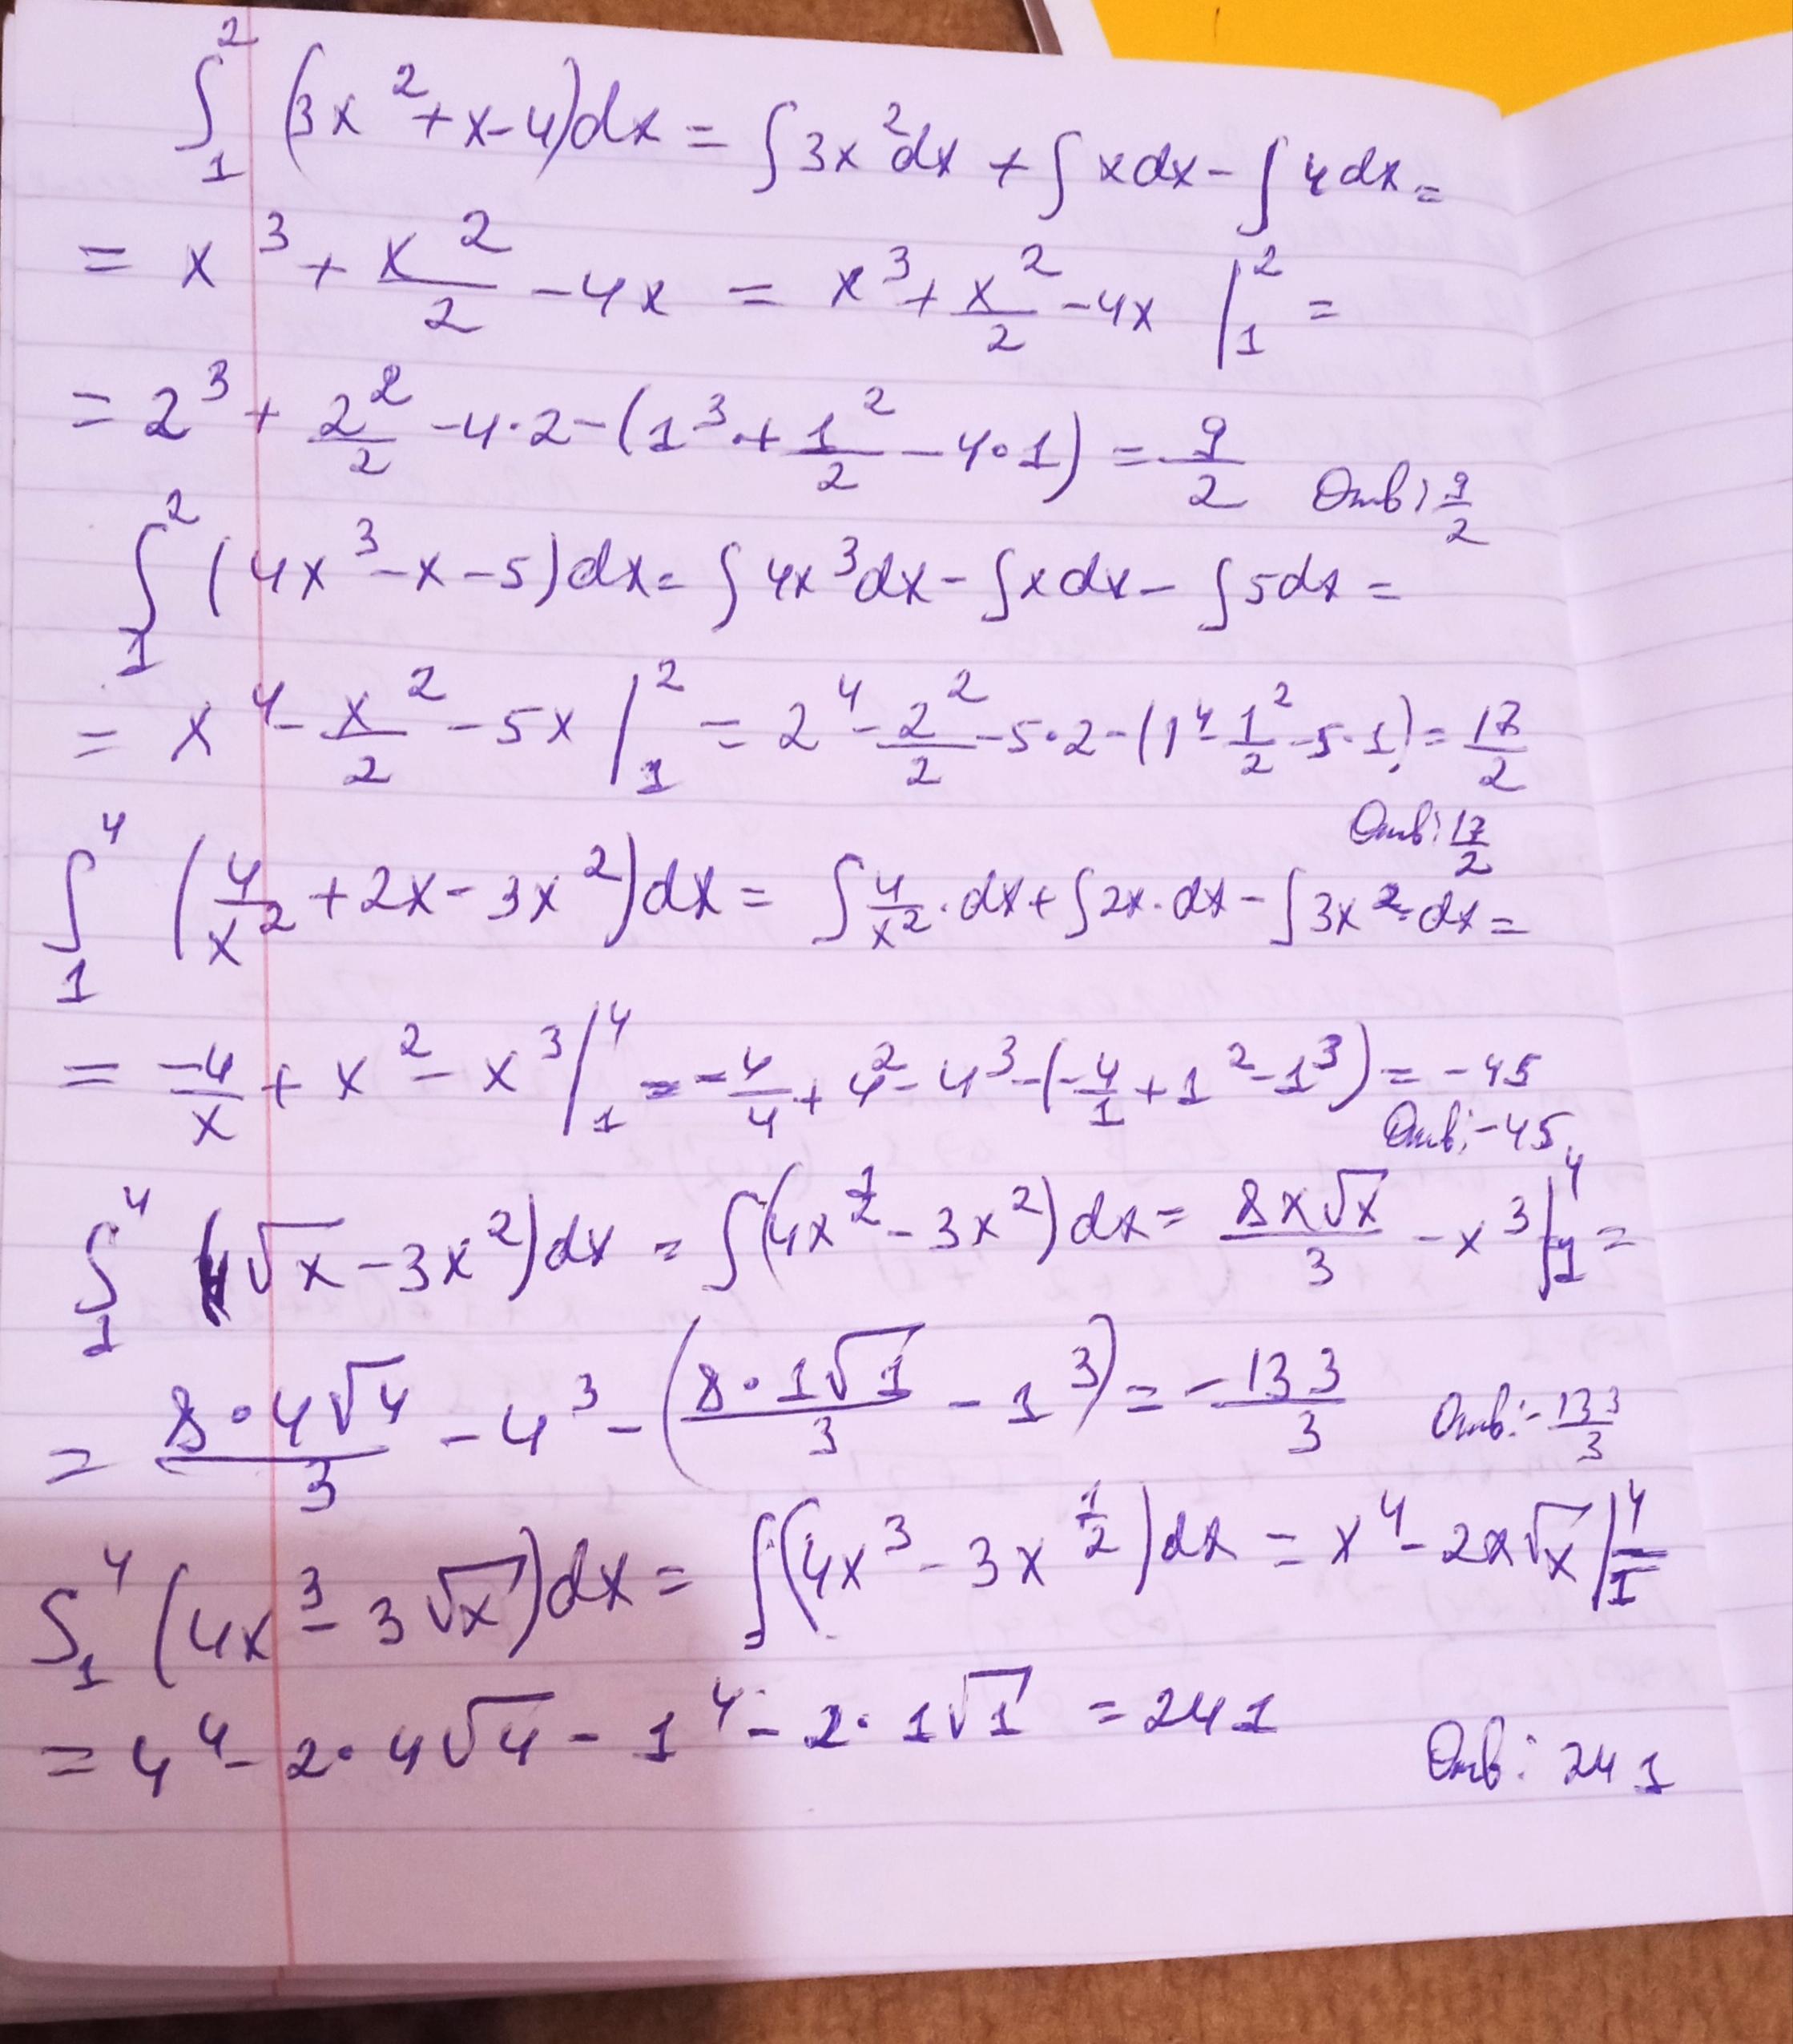 ∫₁² (3x² + x - 4)dx = ∫3x²dx + ∫xdx - ∫4dx =
= x³ + x²/2 - 4x = x³ + x²/2 - 4x |₁² =
= 2³ + 2²/2 - 4·2 - (1³ + 1²/2 - 4·1) = 9/2 Отв: 9/2
∫₁² (4x³ - x - 5)dx = ∫4x³dx - ∫xdx - ∫5dx =
= x⁴ - x²/2 - 5x |₁² = 2⁴ - 2²/2 - 5·2 - (1⁴ - 1²/2 - 5·1) = 17/2
Отв: 17/2
∫₁⁴ (4/x² + 2x - 3x²)dx = ∫4/x²·dx + ∫2x·dx - ∫3x²·dx =
= -4/x + x² - x³ |₁⁴ = -4/4 + 4² - 4³ - (-4/1 + 1² - 1³) = -45
Отв: -45
∫₁⁴ (4√x - 3x²)dx = ∫(4x^(1/2) - 3x²)dx = 8x√x/3 - x³ |₁⁴ =
= 8·4√4/3 - 4³ - (8·1√1/3 - 1³) = -133/3 Отв: -133/3
∫₁⁴ (4x³ - 3√x)dx = ∫(4x³ - 3x^(1/2))dx = x⁴ - 2x√x |₁⁴ =
= 4⁴ - 2·4√4 - 1⁴ - 2·1√1 = 241
Отв: 241